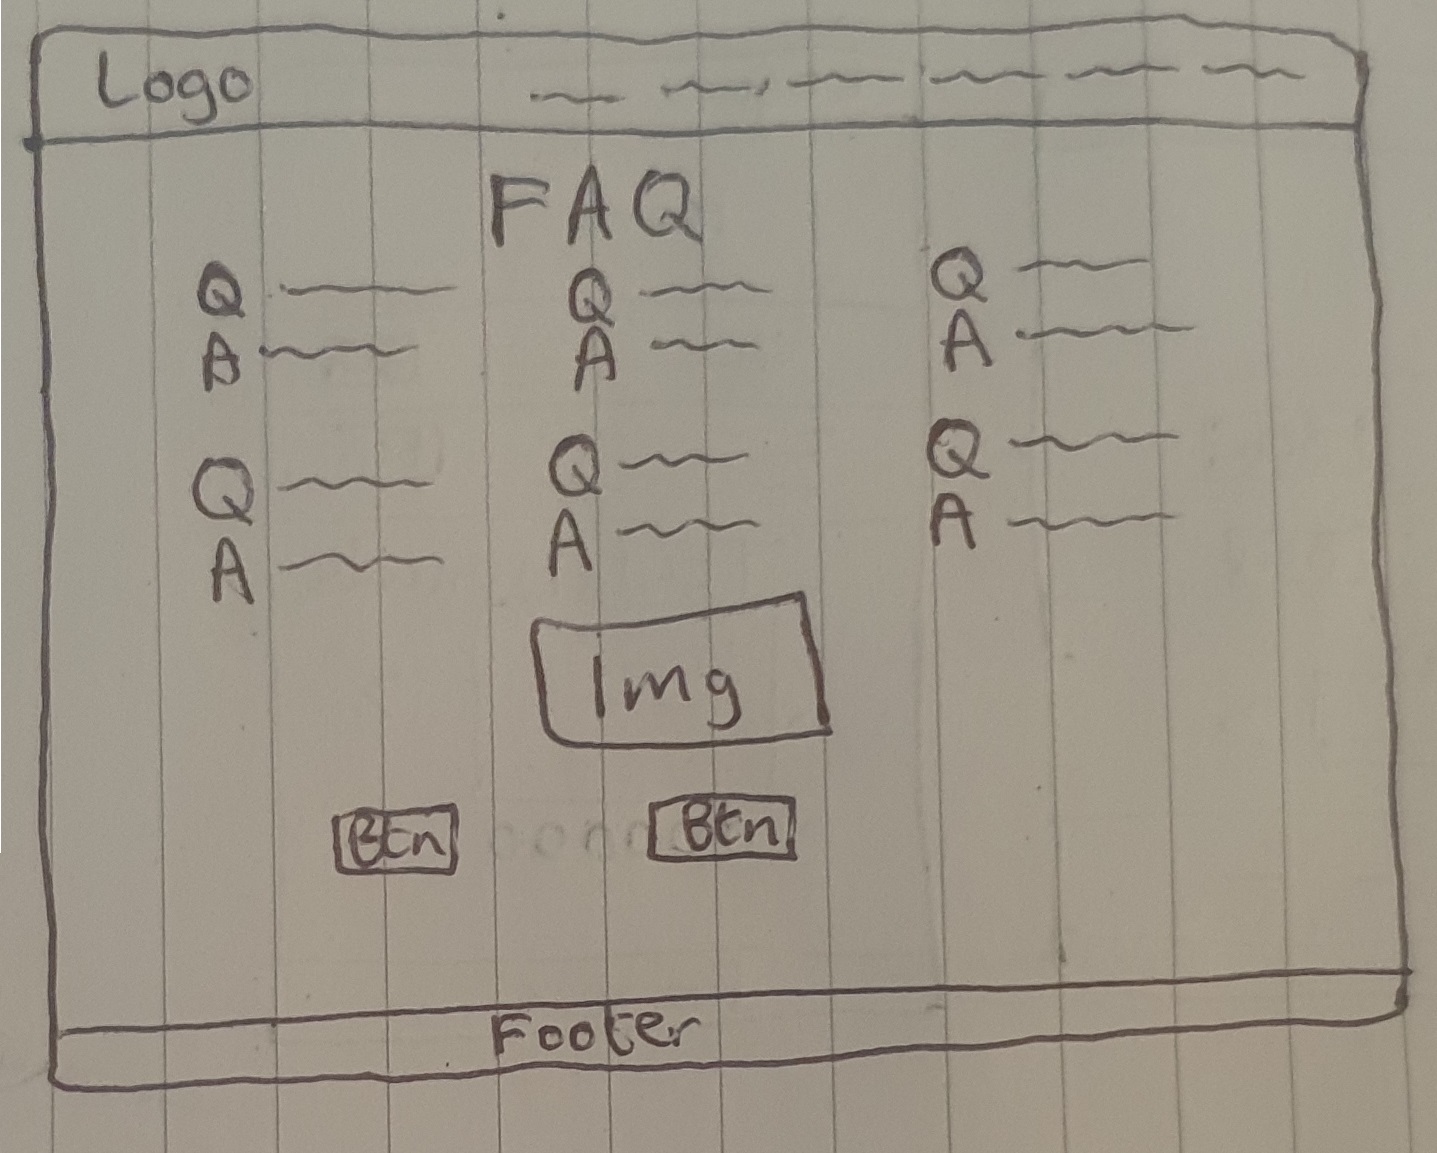 Logo
FAQ
Q Q Q
A A A
Q Q Q
A A A
Img
Btn Btn
Footer